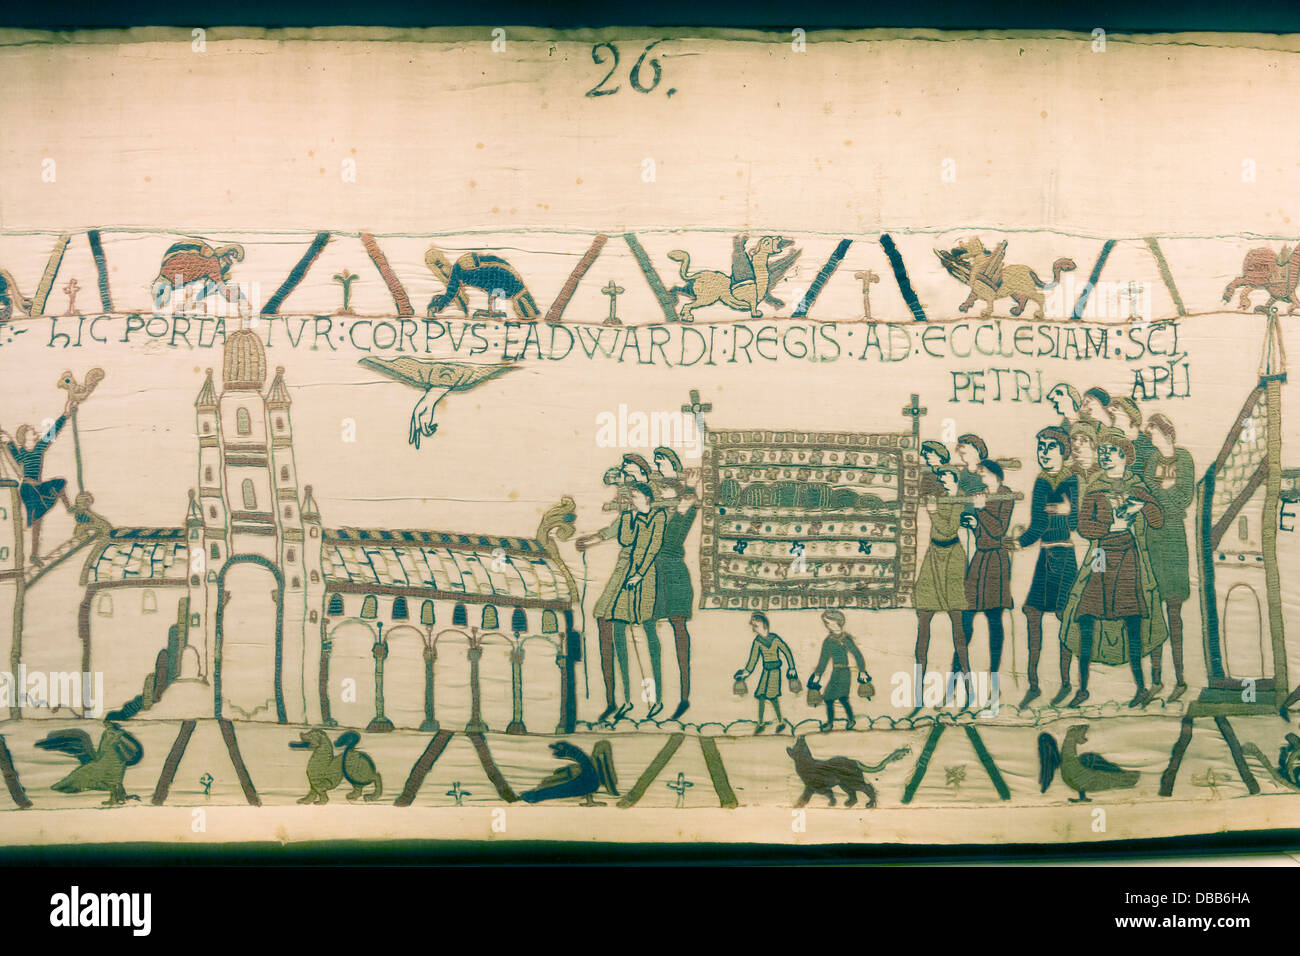 26.
: hIC PORTATVR : CORPVS : EADWARDI : REGIS : AD : ECCLESIAM : SCI
PETRI APLI
E
alamy
Image ID: DBB6HA
www.alamy.com